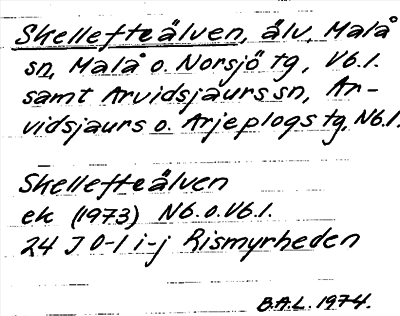 Skellefteälven, älv, Malå
sn, Malå o. Norsjö tg, Vb.l.
samt Arvidsjaurs sn, Ar-
vidsjaurs o. Arjeplogs tg, Nb.l.
Skellefteälven
ek (1973) Nb.o.Vb.l.
24 J 0-1 i-j Rismyrheden
B.A.L. 1974.